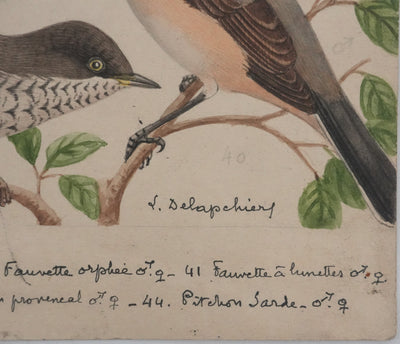 ♂
40
L. Delapchier
Fauvette orphée ♂ ♀ - 41 Fauvette à lunettes ♂ ♀
provencal ♂ ♀ - 44. Pitchou Sarde - ♂ ♀